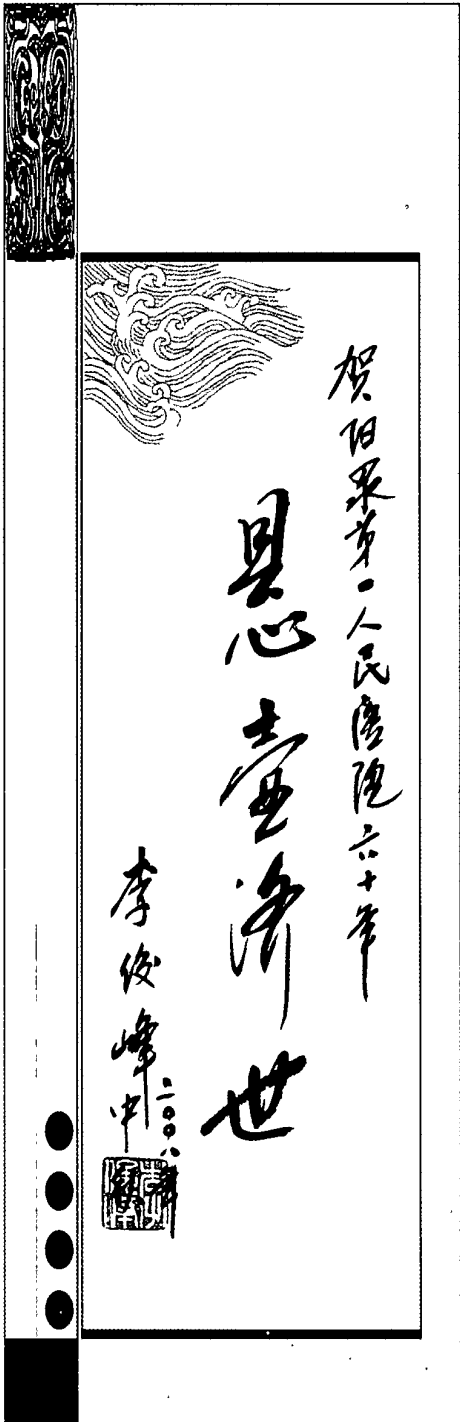 贺阳泉第一人民医院六十年
悬壶济世
李俊峰
二〇〇八年